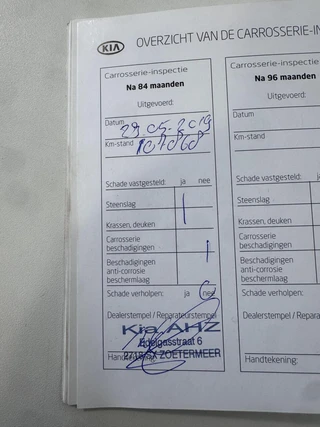 KIA OVERZICHT VAN DE CARROSSERIE-IN
Carrosserie-inspectie
Na 84 maanden
Uitgevoerd:
Datum 29.05.2019
Km-stand 107068
Schade vastgesteld: ja nee
Steenslag
Krassen, deuken
Carrosserie
beschadigingen
Beschadigingen
anti-corrosie
beschermlaag
Schade verholpen: ja nee
Dealerstempel / Reparateurstempel
Kia AHZ
Edelgasstraat 6
2718 SX ZOETERMEER
Carrosserie-inspectie
Na 96 maanden
Uitgevoerd:
Datum
Km-stand
Schade vastgesteld:
Steenslag
Krassen, deuken
Carrosserie
beschadigingen
Beschadigingen
anti-corrosie
beschermlaag
Schade verholpen:
Dealerstempel / Repara
Handtekening: